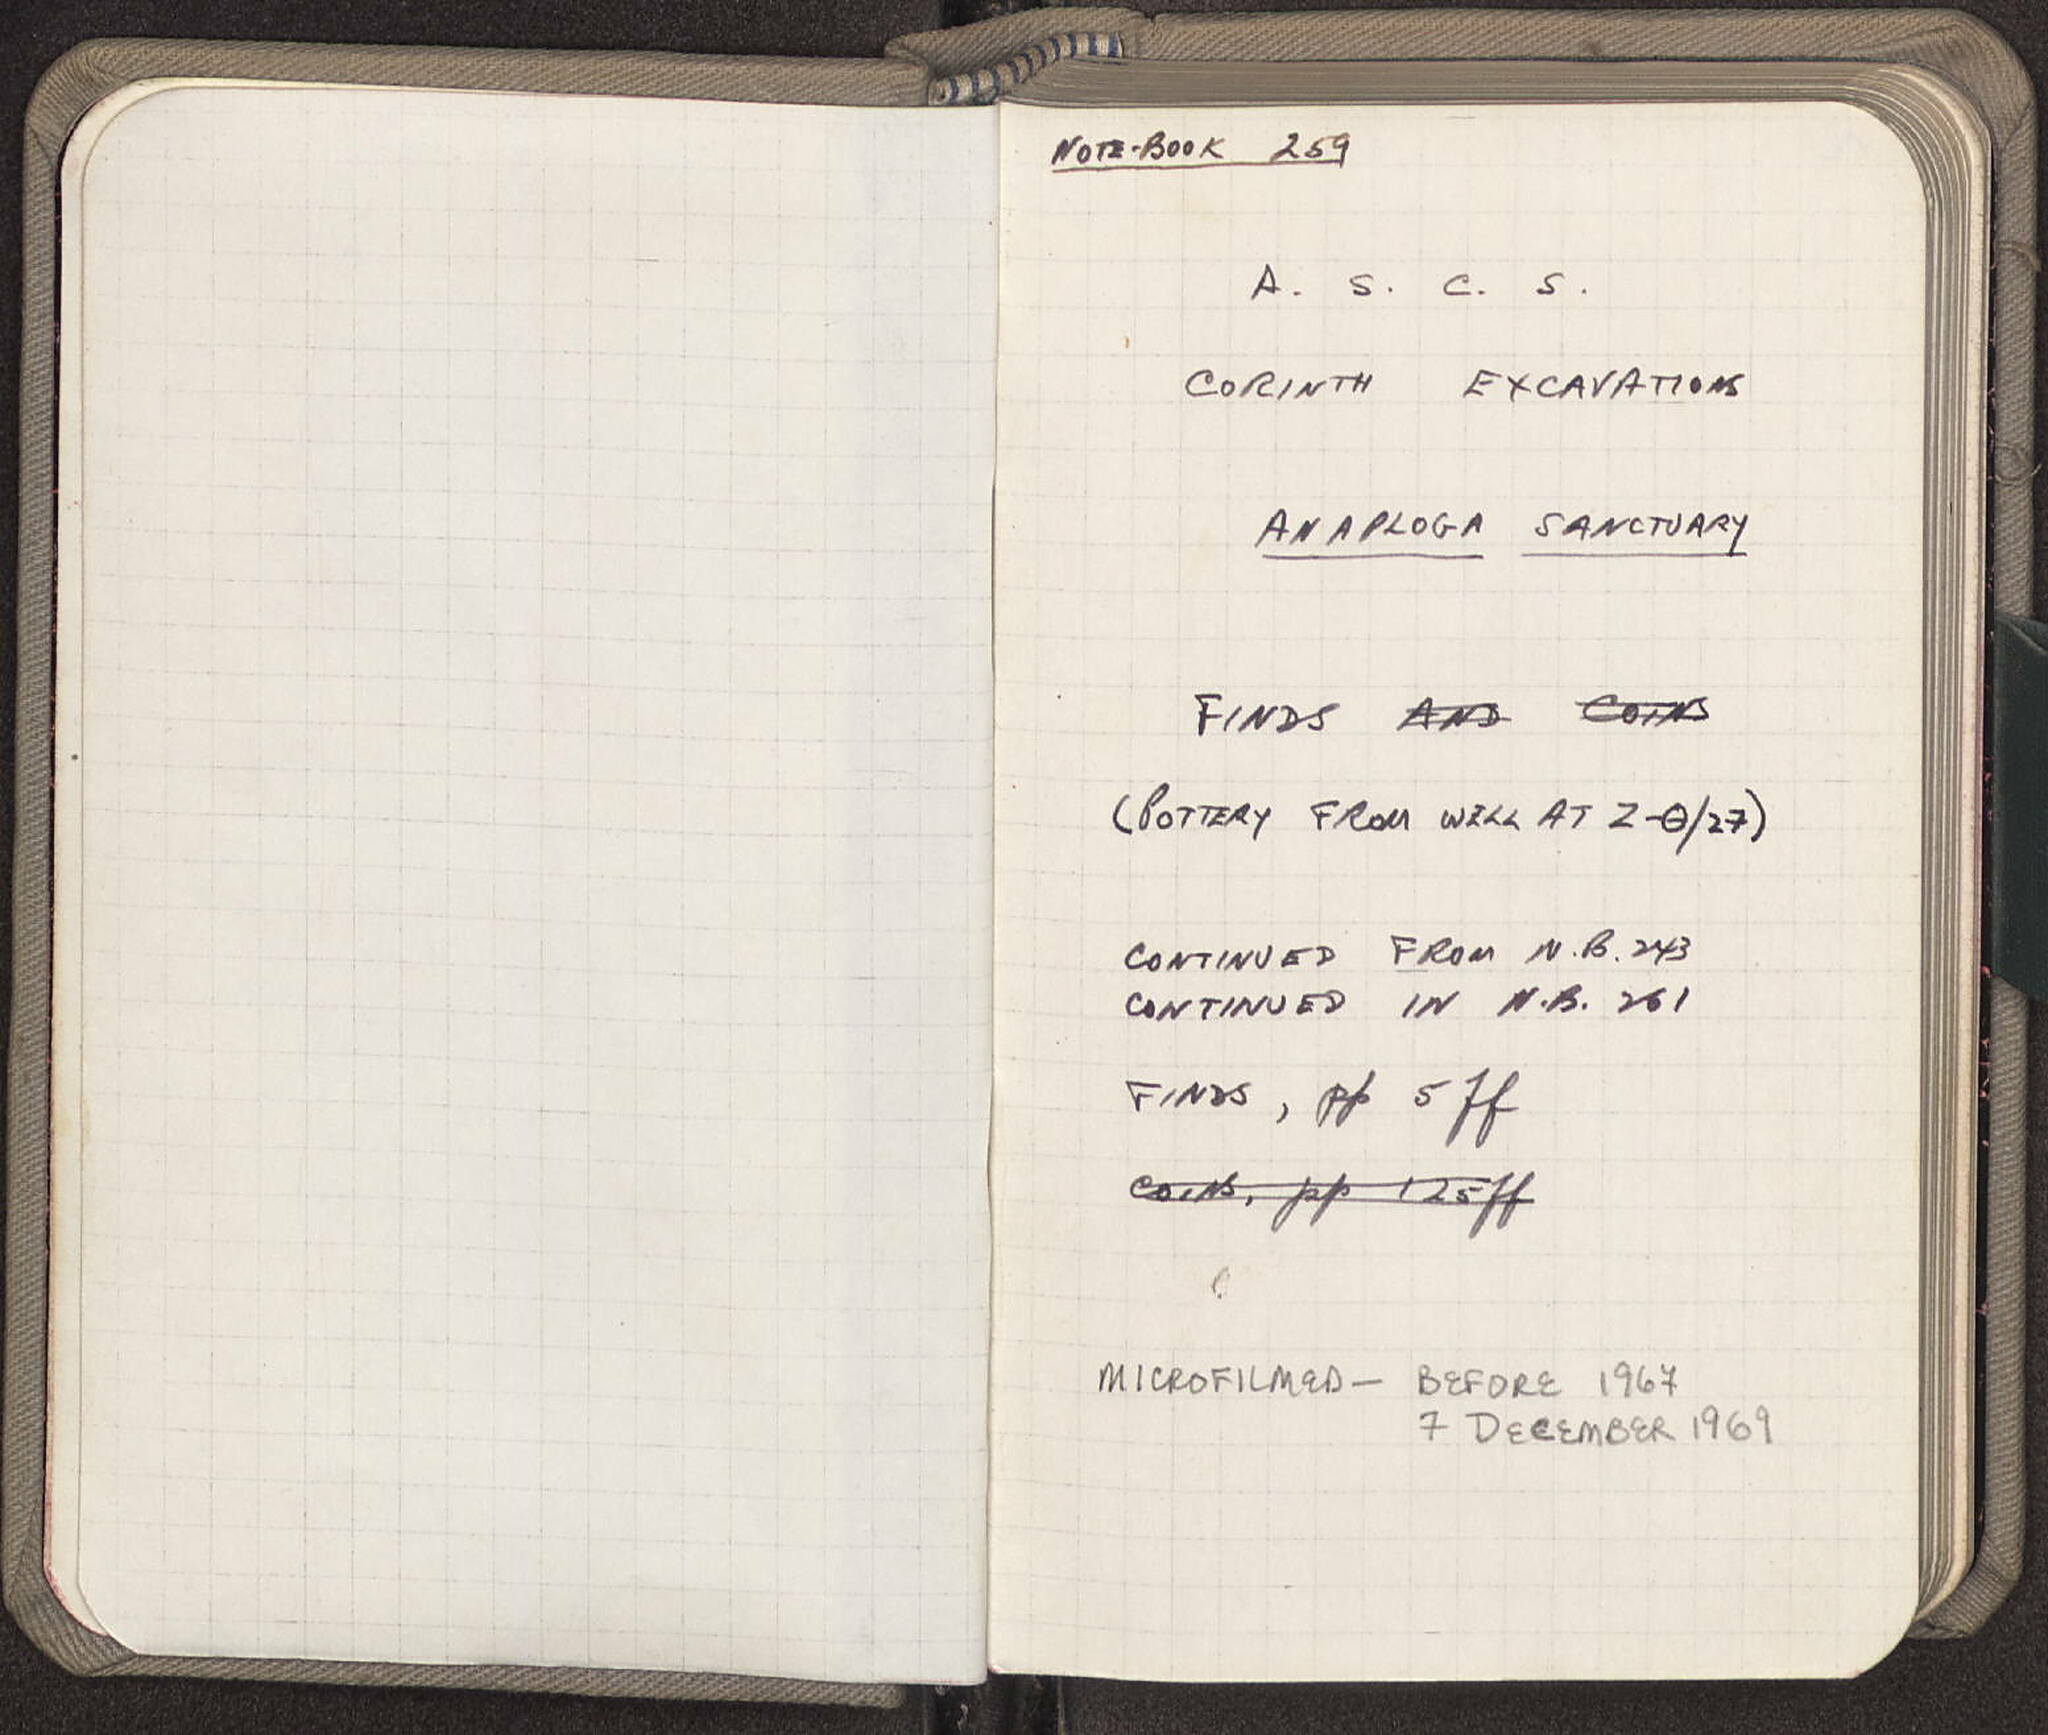 NOTE-BOOK 259
A. S. C. S.
CORINTH EXCAVATIONS
ANAPLOGA SANCTUARY
FINDS AND COINS
(POTTERY FROM WELL AT Z-Θ/27)
CONTINUED FROM N.B. 243
CONTINUED IN N.B. 261
FINDS, pp 5 ff
COINS, pp 125 ff
MICROFILMED— BEFORE 1967
7 DECEMBER 1969